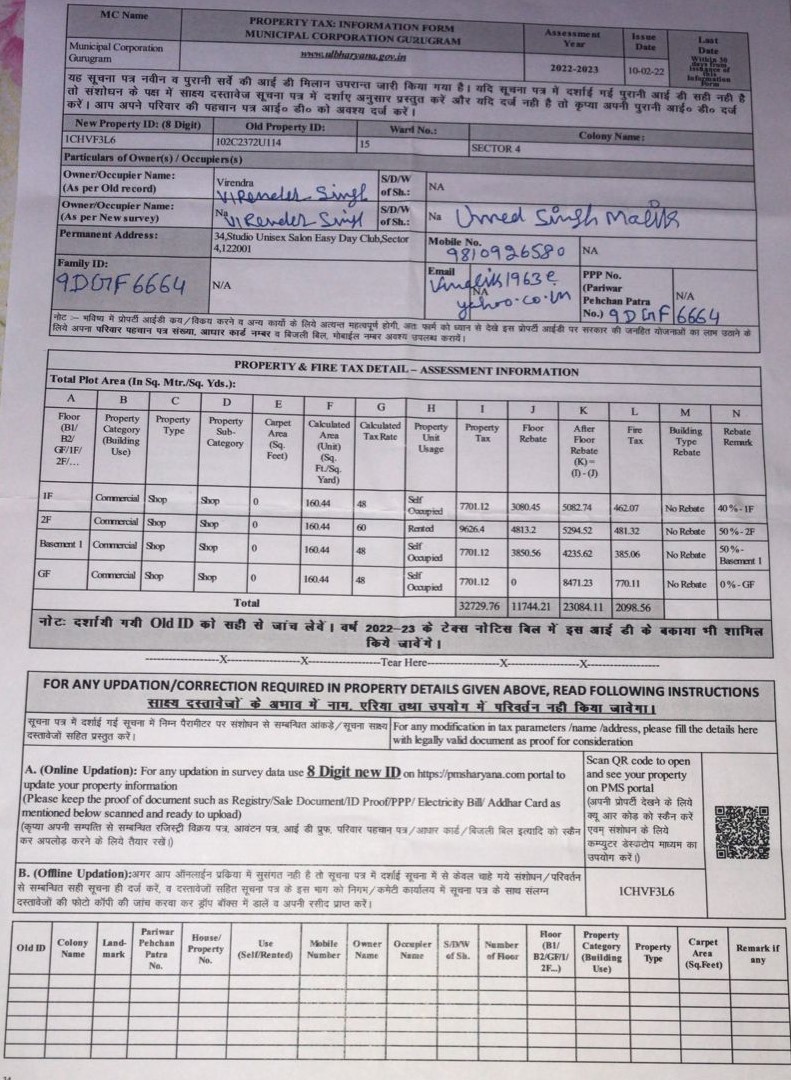 MC Name
PROPERTY TAX: INFORMATION FORM
MUNICIPAL CORPORATION GURUGRAM
Assessment Year
Issue Date
Last Date
Within 30 days from issuance of this Information Form
Municipal Corporation Gurugram
www.ulbharyana.gov.in
2022-2023
10-02-22
यह सूचना पत्र नवीन व पुरानी सर्वे की आई डी मिलान उपरान्त जारी किया गया है। यदि सूचना पत्र में दर्शाई गई पुरानी आई डी सही नही है
तो संशोधन के पक्ष में साक्ष्य दस्तावेज सूचना पत्र में दर्शाए अनुसार प्रस्तुत करें और यदि दर्ज नही है तो कृप्या अपनी पुरानी आई० डी० दर्ज
करें। आप अपने परिवार की पहचान पत्र आई० डी० को अवश्य दर्ज करें।
New Property ID: (8 Digit)
Old Property ID:
Ward No.:
Colony Name:
1CHVF3L6
102C2372U114
15
SECTOR 4
Particulars of Owner(s) / Occupiers(s)
Owner/Occupier Name: (As per Old record)
Virendra
VIRender Singh
S/D/W of Sh.:
NA
Owner/Occupier Name: (As per New survey)
Na
VIRender Singh
S/D/W of Sh.:
Na
Umed Singh Malik
Permanent Address:
34,Studio Unisex Salon Easy Day Club,Sector 4,122001
Mobile No.
9810926580
NA
Family ID:
9DGF6664
N/A
Email
NA
Vmalik1963@yahoo.co.in
PPP No. (Pariwar Pehchan Patra No.)
N/A
9DGF6664
नोट :- भविष्य में प्रोपर्टी आईडी कय/विकय करने व अन्य कार्यो के लिये अत्यन्त महत्वपूर्ण होगी, अतः फार्म को ध्यान से देखे इस प्रोपर्टी आईडी पर सरकार की जनहित योजनाओं का लाभ उठाने के
लिये अपना परिवार पहचान पत्र संख्या, आधार कार्ड नम्बर व बिजली बिल, मोबाईल नम्बर अवश्य उपलब्ध करायें।
PROPERTY & FIRE TAX DETAIL – ASSESSMENT INFORMATION
Total Plot Area (In Sq. Mtr./Sq. Yds.):
A B C D E F G H I J K L M N
Floor (B1/ B2/ GF/1F/ 2F/...
Property Category (Building Use)
Property Type
Property Sub-Category
Carpet Area (Sq. Feet)
Calculated Area (Unit) (Sq. Ft./Sq. Yard)
Calculated Tax Rate
Property Unit Usage
Property Tax
Floor Rebate
After Floor Rebate (K)= (I) - (J)
Fire Tax
Building Type Rebate
Rebate Remark
1F Commercial Shop Shop 0 160.44 48 Self Occupied 7701.12 3080.45 5082.74 462.07 No Rebate 40 % - 1F
2F Commercial Shop Shop 0 160.44 60 Rented 9626.4 4813.2 5294.52 481.32 No Rebate 50 % - 2F
Basement 1 Commercial Shop Shop 0 160.44 48 Self Occupied 7701.12 3850.56 4235.62 385.06 No Rebate 50 % - Basement 1
GF Commercial Shop Shop 0 160.44 48 Self Occupied 7701.12 0 8471.23 770.11 No Rebate 0 % - GF
Total 32729.76 11744.21 23084.11 2098.56
नोटः दर्शायी गयी Old ID को सही से जांच लेवें। वर्ष 2022-23 के टेक्स नोटिस बिल में इस आई डी के बकाया भी शामिल
किये जावेंगे।
--------X--------X--------Tear Here--------X--------X--------
FOR ANY UPDATION/CORRECTION REQUIRED IN PROPERTY DETAILS GIVEN ABOVE, READ FOLLOWING INSTRUCTIONS
साक्ष्य दस्तावेजों के अभाव में नाम, एरिया तथा उपयोग में परिवर्तन नही किया जावेगा।
सूचना पत्र में दर्शाई गई सूचना में निम्न पैरामीटर पर संशोधन से सम्बन्धित आंकड़े/सूचना साक्ष्य
दस्तावेजों सहित प्रस्तुत करें।
For any modification in tax parameters /name /address, please fill the details here
with legally valid document as proof for consideration
A. (Online Updation): For any updation in survey data use 8 Digit new ID on https://pmsharyana.com portal to
update your property information
(Please keep the proof of document such as Registry/Sale Document/ID Proof/PPP/ Electricity Bill/ Addhar Card as
mentioned below scanned and ready to upload)
(कृप्या अपनी सम्पत्ति से सम्बन्धित रजिस्ट्री विक्रय पत्र, आवंटन पत्र, आई डी प्रुफ, परिवार पहचान पत्र/आधार कार्ड/बिजली बिल इत्यादि को स्कैन
कर अपलोड करने के लिये तैयार रखें।)
Scan QR code to open
and see your property
on PMS portal
(अपनी प्रोपर्टी देखने के लिये
क्यू आर कोड को स्कैन करें
एवम् संशोधन के लिये
कम्प्युटर डेस्कटोप माध्यम का
उपयोग करें।)
B. (Offline Updation):अगर आप ऑनलाईन प्रकिया में सुसंगत नही है तो सूचना पत्र में दर्शाई सूचना में से केवल चाहे गये संशोधन/परिवर्तन
से सम्बन्धित सही सूचना ही दर्ज करें, व दस्तावेजों सहित सूचना पत्र के इस भाग को निगम/कमेटी कार्यालय में सूचना पत्र के साथ संलग्न
दस्तावेजों की फोटो कॉपी की जांच करवा कर ड्रॉप बॉक्स में डालें व अपनी रसीद प्राप्त करें।
1CHVF3L6
Old ID
Colony Name
Land-mark
Pariwar Pehchan Patra No.
House/ Property No.
Use (Self/Rented)
Mobile Number
Owner Name
Occupier Name
S/D/W of Sh.
Number of Floor
Floor (B1/ B2/GF/1/ 2F...)
Property Category (Building Use)
Property Type
Carpet Area (Sq.Feet)
Remark if any